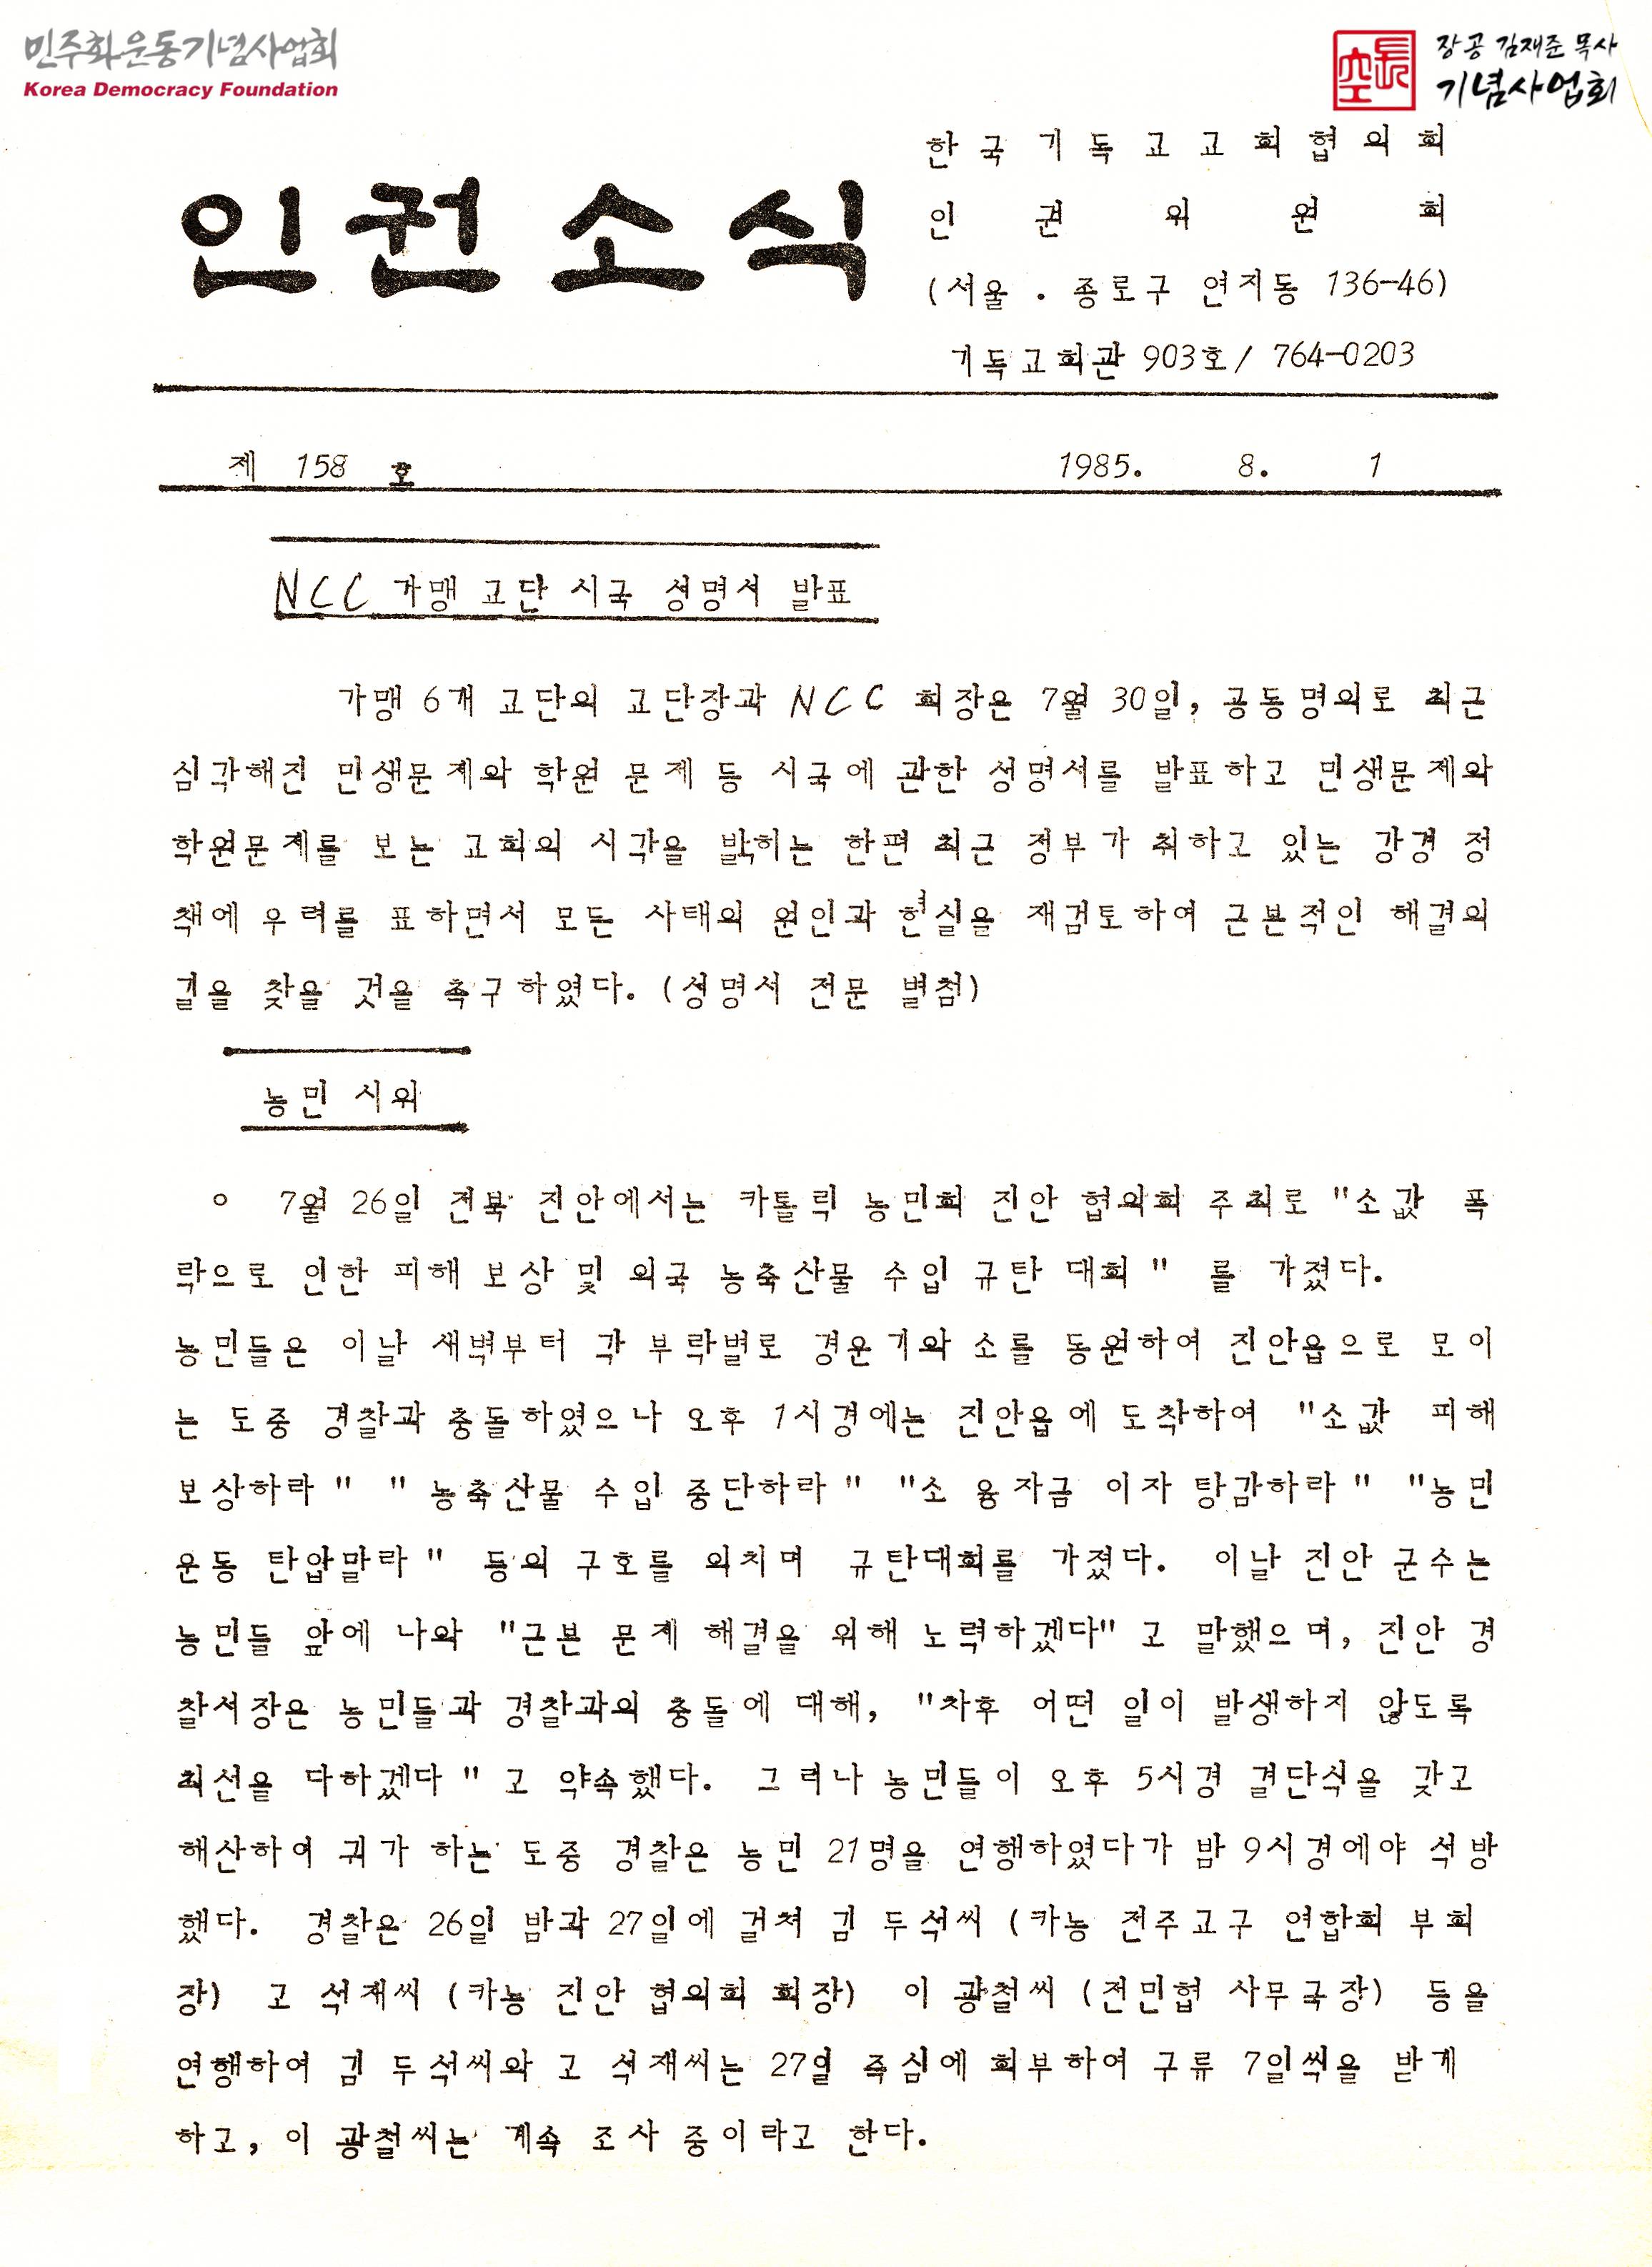 민주화운동기념사업회
Korea Democracy Foundation
장공 김재준 목사
기념사업회
인권소식
한국기독교교회협의회
인권위원회
(서울 . 종로구 연지동 136-46)
기독교회관 903호/ 764-0203
제 158 호 1985. 8. 1
NCC 가맹 교단 시국 성명서 발표
가맹 6개 교단의 교단장과 NCC 회장은 7월 30일, 공동명의로 최근
심각해진 민생문제와 학원 문제 등 시국에 관한 성명서를 발표하고 민생문제와
학원문제를 보는 교회의 시각을 밝히는 한편 최근 정부가 취하고 있는 강경 정
책에 우려를 표하면서 모든 사태의 원인과 현실을 재검토하여 근본적인 해결의
길을 찾을 것을 촉구하였다. (성명서 전문 별첨)
농민 시위
o 7월 26일 전북 진안에서는 카톨릭 농민회 진안 협의회 주최로 "소값 폭
락으로 인한 피해 보상 및 외국 농축산물 수입 규탄 대회" 를 가졌다.
농민들은 이날 새벽부터 각 부락별로 경운기와 소를 동원하여 진안읍으로 모이
는 도중 경찰과 충돌하였으나 오후 1시경에는 진안읍에 도착하여 "소값 피해
보상하라" "농축산물 수입 중단하라" "소 융자금 이자 탕감하라" "농민
운동 탄압말라" 등의 구호를 외치며 규탄대회를 가졌다. 이날 진안 군수는
농민들 앞에 나와 "근본 문제 해결을 위해 노력하겠다" 고 말했으며, 진안 경
찰서장은 농민들과 경찰과의 충돌에 대해, "차후 어떤 일이 발생하지 않도록
최선을 다하겠다" 고 약속했다. 그러나 농민들이 오후 5시경 결단식을 갖고
해산하여 귀가 하는 도중 경찰은 농민 21명을 연행하였다가 밤 9시경에야 석방
했다. 경찰은 26일 밤과 27일에 걸쳐 김 두석씨 (카농 전주교구 연합회 부회
장) 고 석재씨 (카농 진안 협의회 회장) 이 광철씨 (전민협 사무국장) 등을
연행하여 김 두석씨와 고 석재씨는 27일 즉심에 회부하여 구류 7일씩을 받게
하고, 이 광철씨는 계속 조사 중이라고 한다.